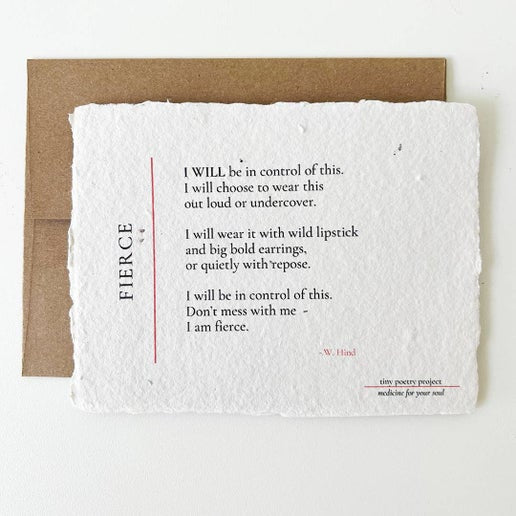 FIERCE
I WILL be in control of this.
I will choose to wear this
out loud or undercover.
I will wear it with wild lipstick
and big bold earrings,
or quietly with repose.
I will be in control of this.
Don't mess with me -
I am fierce.
~ W. Hind
tiny poetry project
medicine for your soul